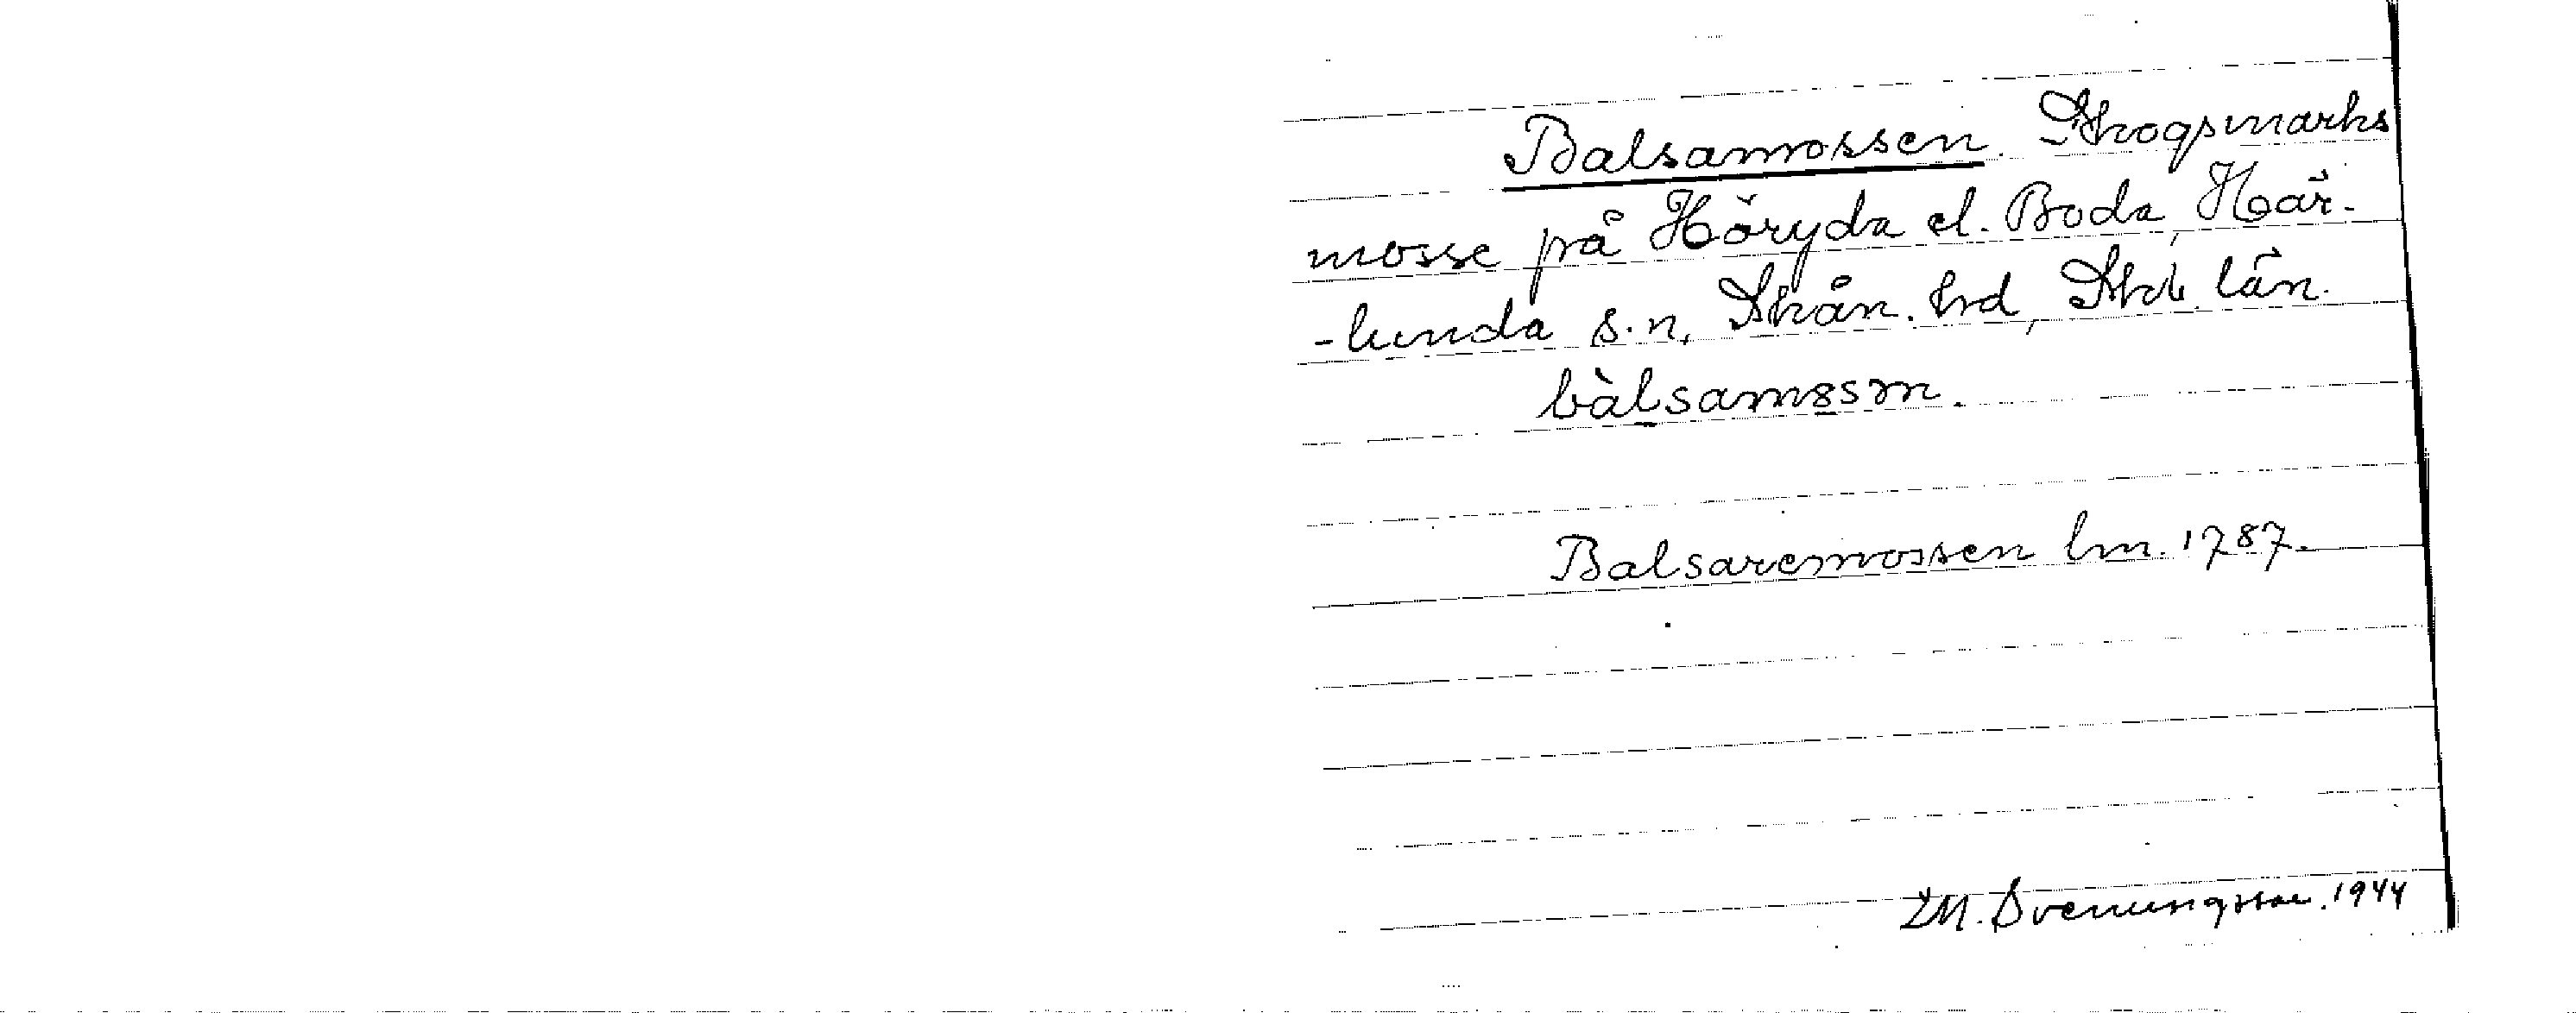 Balsamossen. Skogsmarks
mosse på Höryda el. Boda, Här-
-lunda s.n, Skån. hd, Skb. län.
bàlsamssn.
Balsaremossen lm. 1787.
M. Svenungsson. 1944